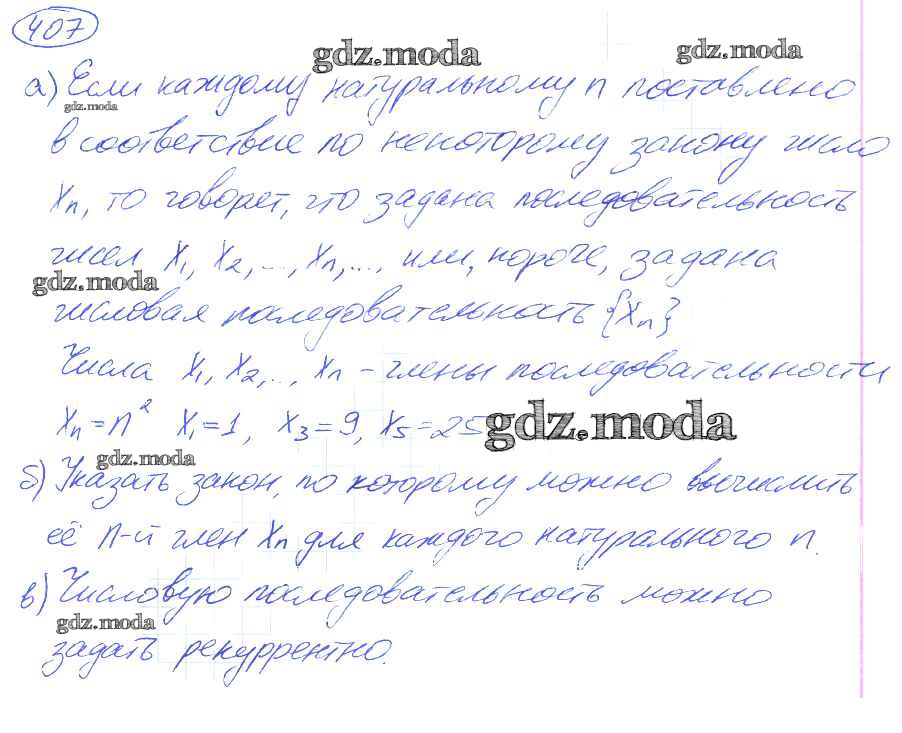 407
gdz.moda gdz.moda
а) Если каждому натуральному n поставлено
gdz.moda
в соответствие по некоторому закону число
Xn, то говорят, что задана последовательность
чисел X1, X2, ..., Xn, ..., или, короче, задана
gdz.moda
числовая последовательность {Xn}
Числа X1, X2, .., Xn – члены последовательности
Xn = n² X1 = 1, X3 = 9, X5 = 25 gdz.moda
gdz.moda
б) Указать закон, по которому можно вычислить
её n-й член Xn для каждого натурального n.
в) Числовую последовательность можно
gdz.moda
задать рекуррентно.